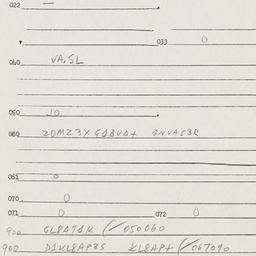 022 —
033 0
040 VA,SL
050 10
060 ZOMZ3Y GABUA+ INVA83R
061 0
070 0
071 0 072 0
900 GL8ATAK (/050060
900 DIKL8AP3S KL8AP+ (/067090